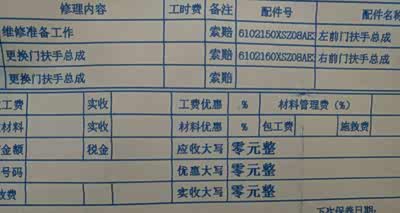 修理内容 工时费 备注 配件号 配件名称
维修准备工作 索赔 6102150XSZ08AE 左前门扶手总成
更换门扶手总成 索赔 6102160XSZ08AE 右前门扶手总成
更换门扶手总成 索赔
工费 实收 工费优惠 % 材料管理费(%)
材料 实收 材料优惠 % 包工费 施救费
金额 税金 应收大写 零元整
号码 优惠大写 零元整
费 实收大写 零元整
下次保养日期: